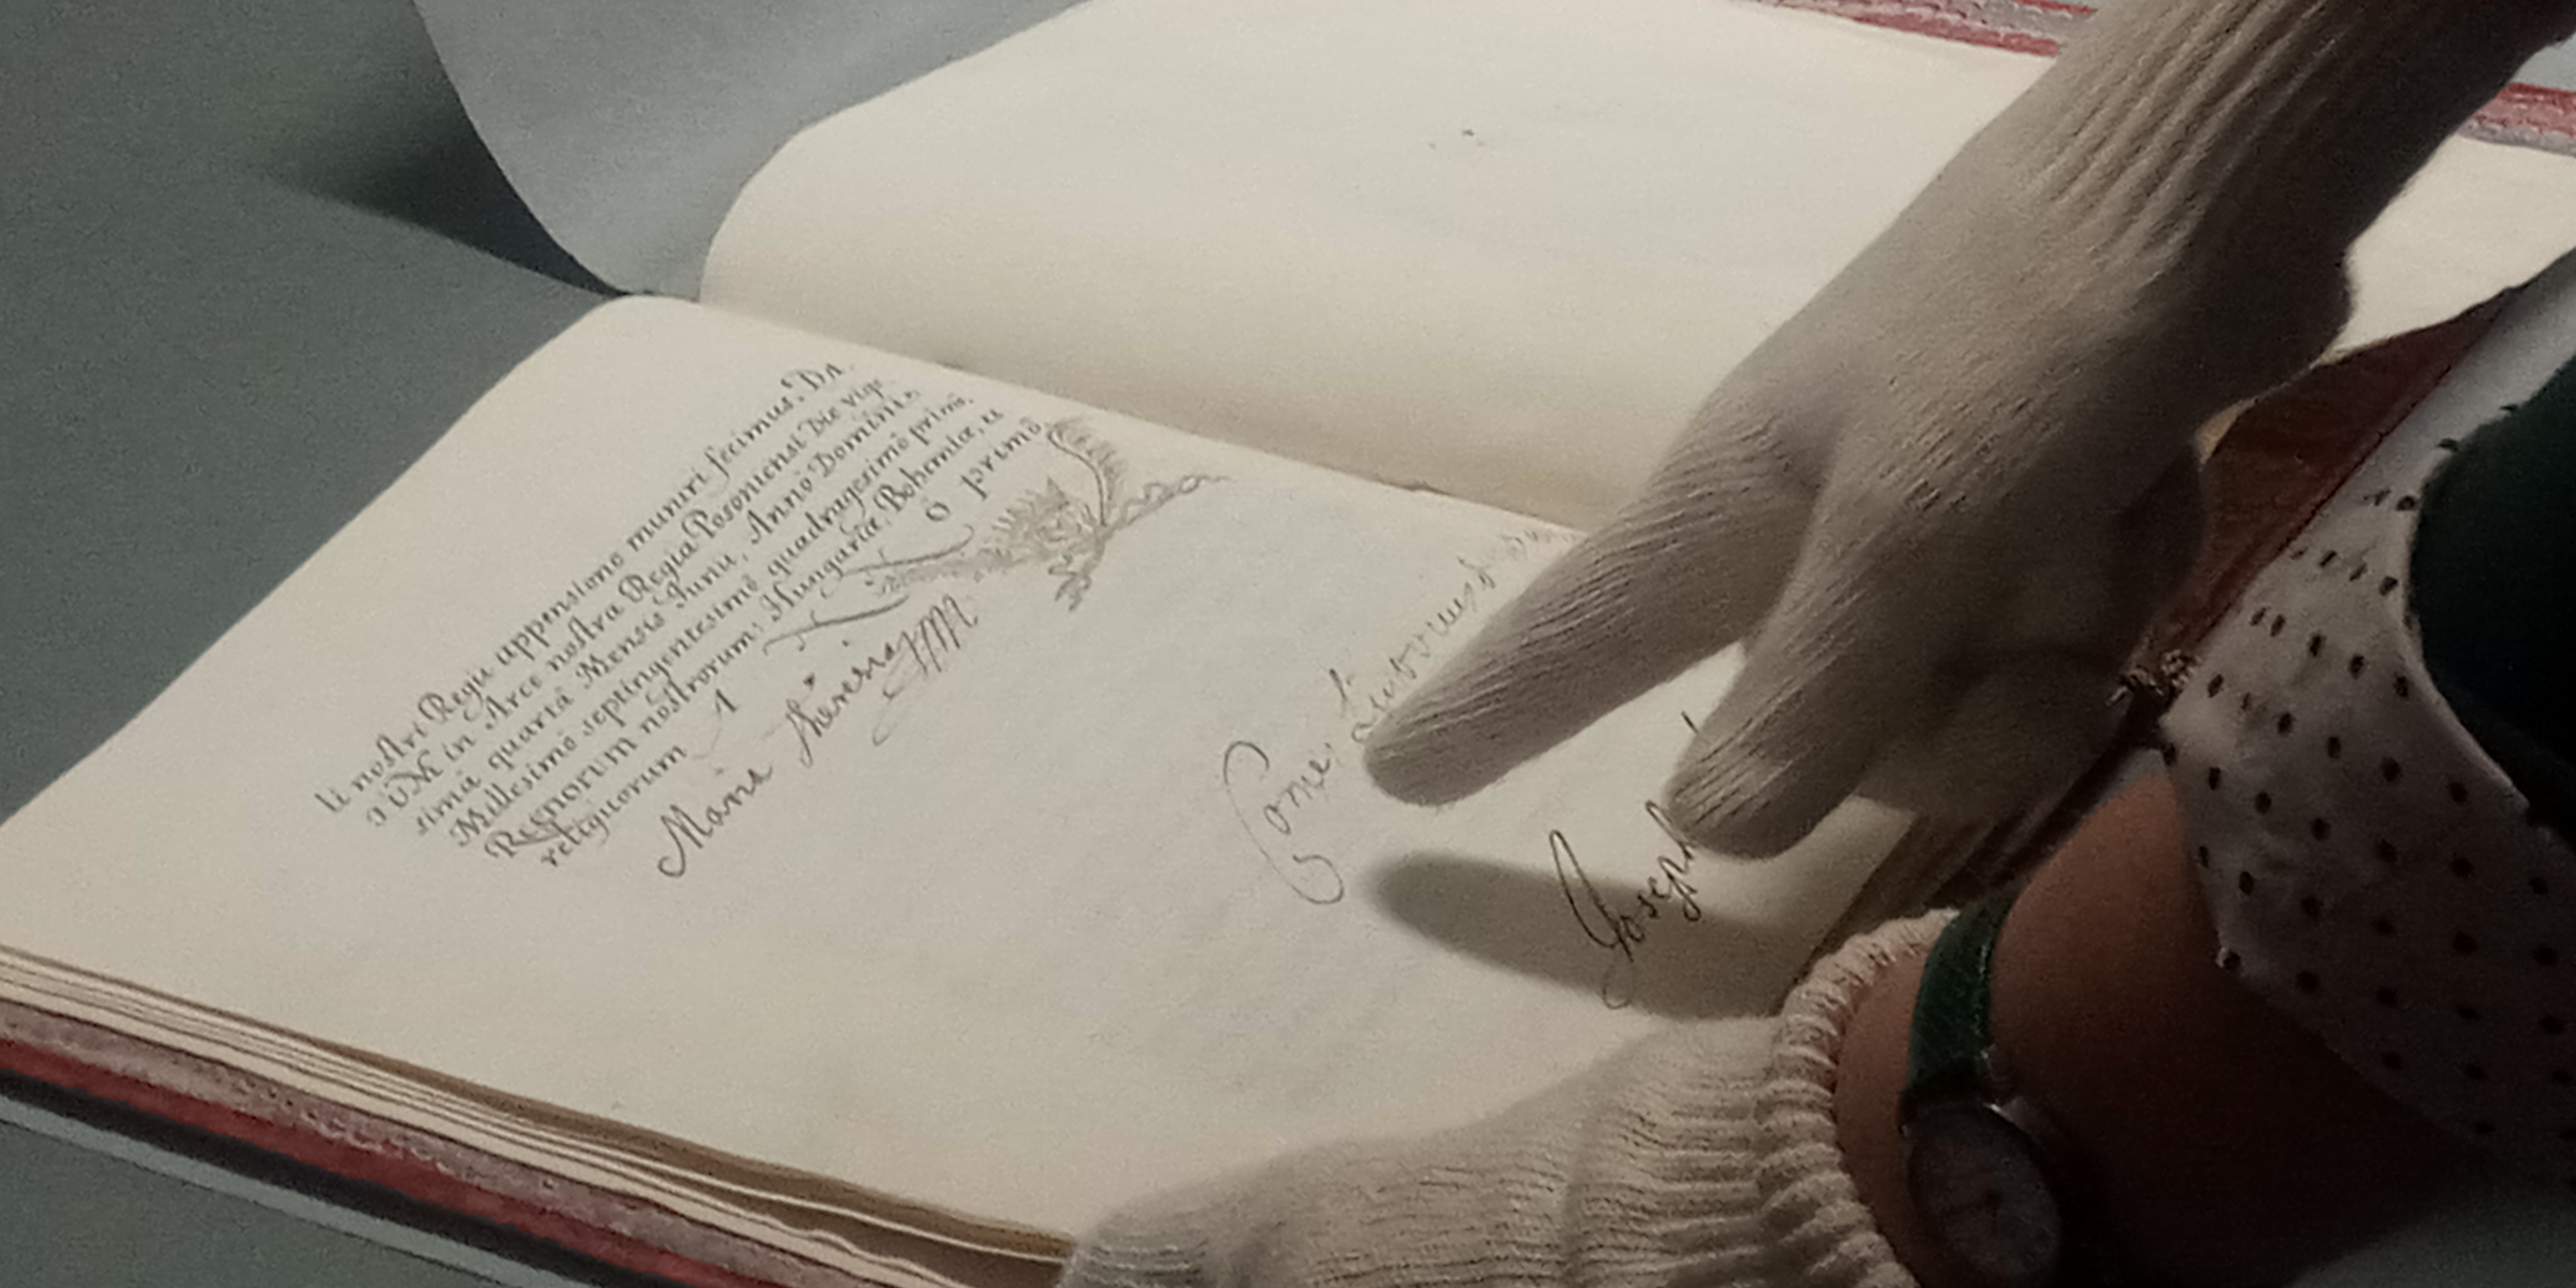 li nostri Regii appensione muniri fecimus. DA,
TUM in Arce nostra Regia Posoniensi Die vige
sima quarta Mensis Junii, Anno Domini
Millesimo septingentesimo quadragesimo primo,
Regnorum nostrorum, Hungariæ, Bohemiæ, u
reliquorum 1 o primo
Maria Theresia
Come
Joseph